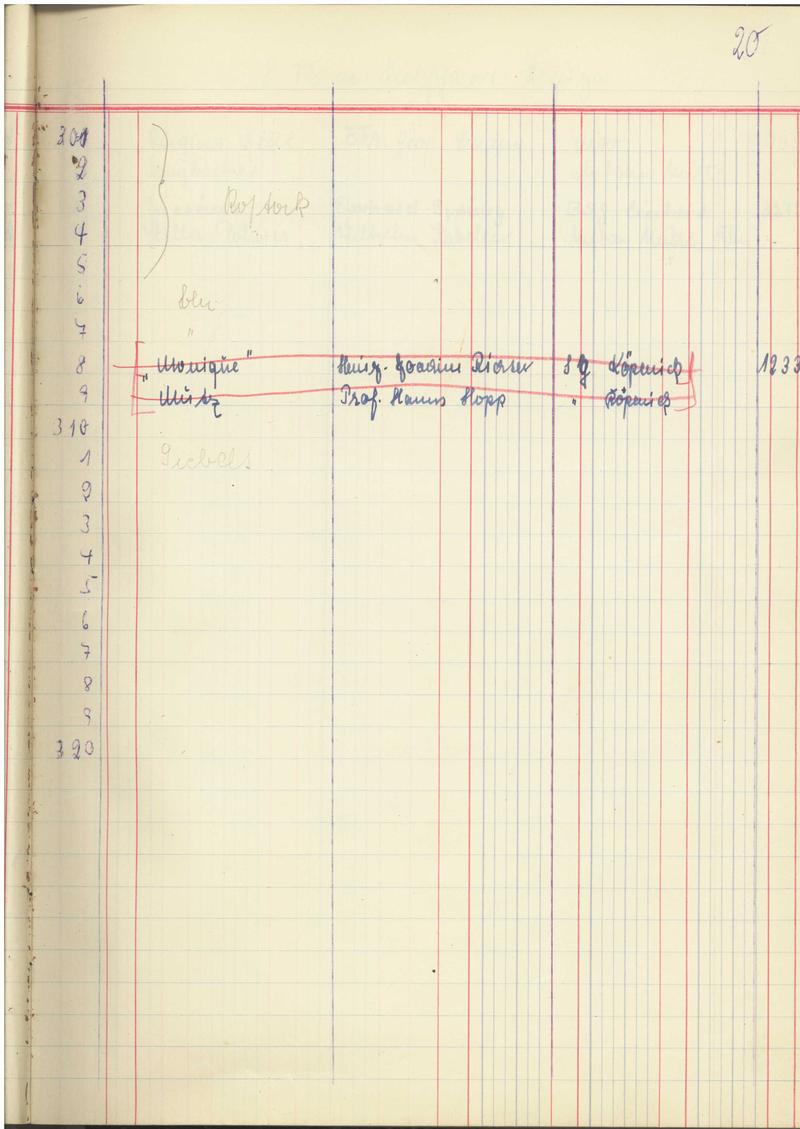 20
301
2
3 Rostock
4 "
5
6 bln
7 "
8 "Monique" Heinz-Joachim Richter SG Köpenick 1233
9 " Prof. Hanns Hopp " Köpenick
310
1
2
3
4
5
6
7
8
9
320